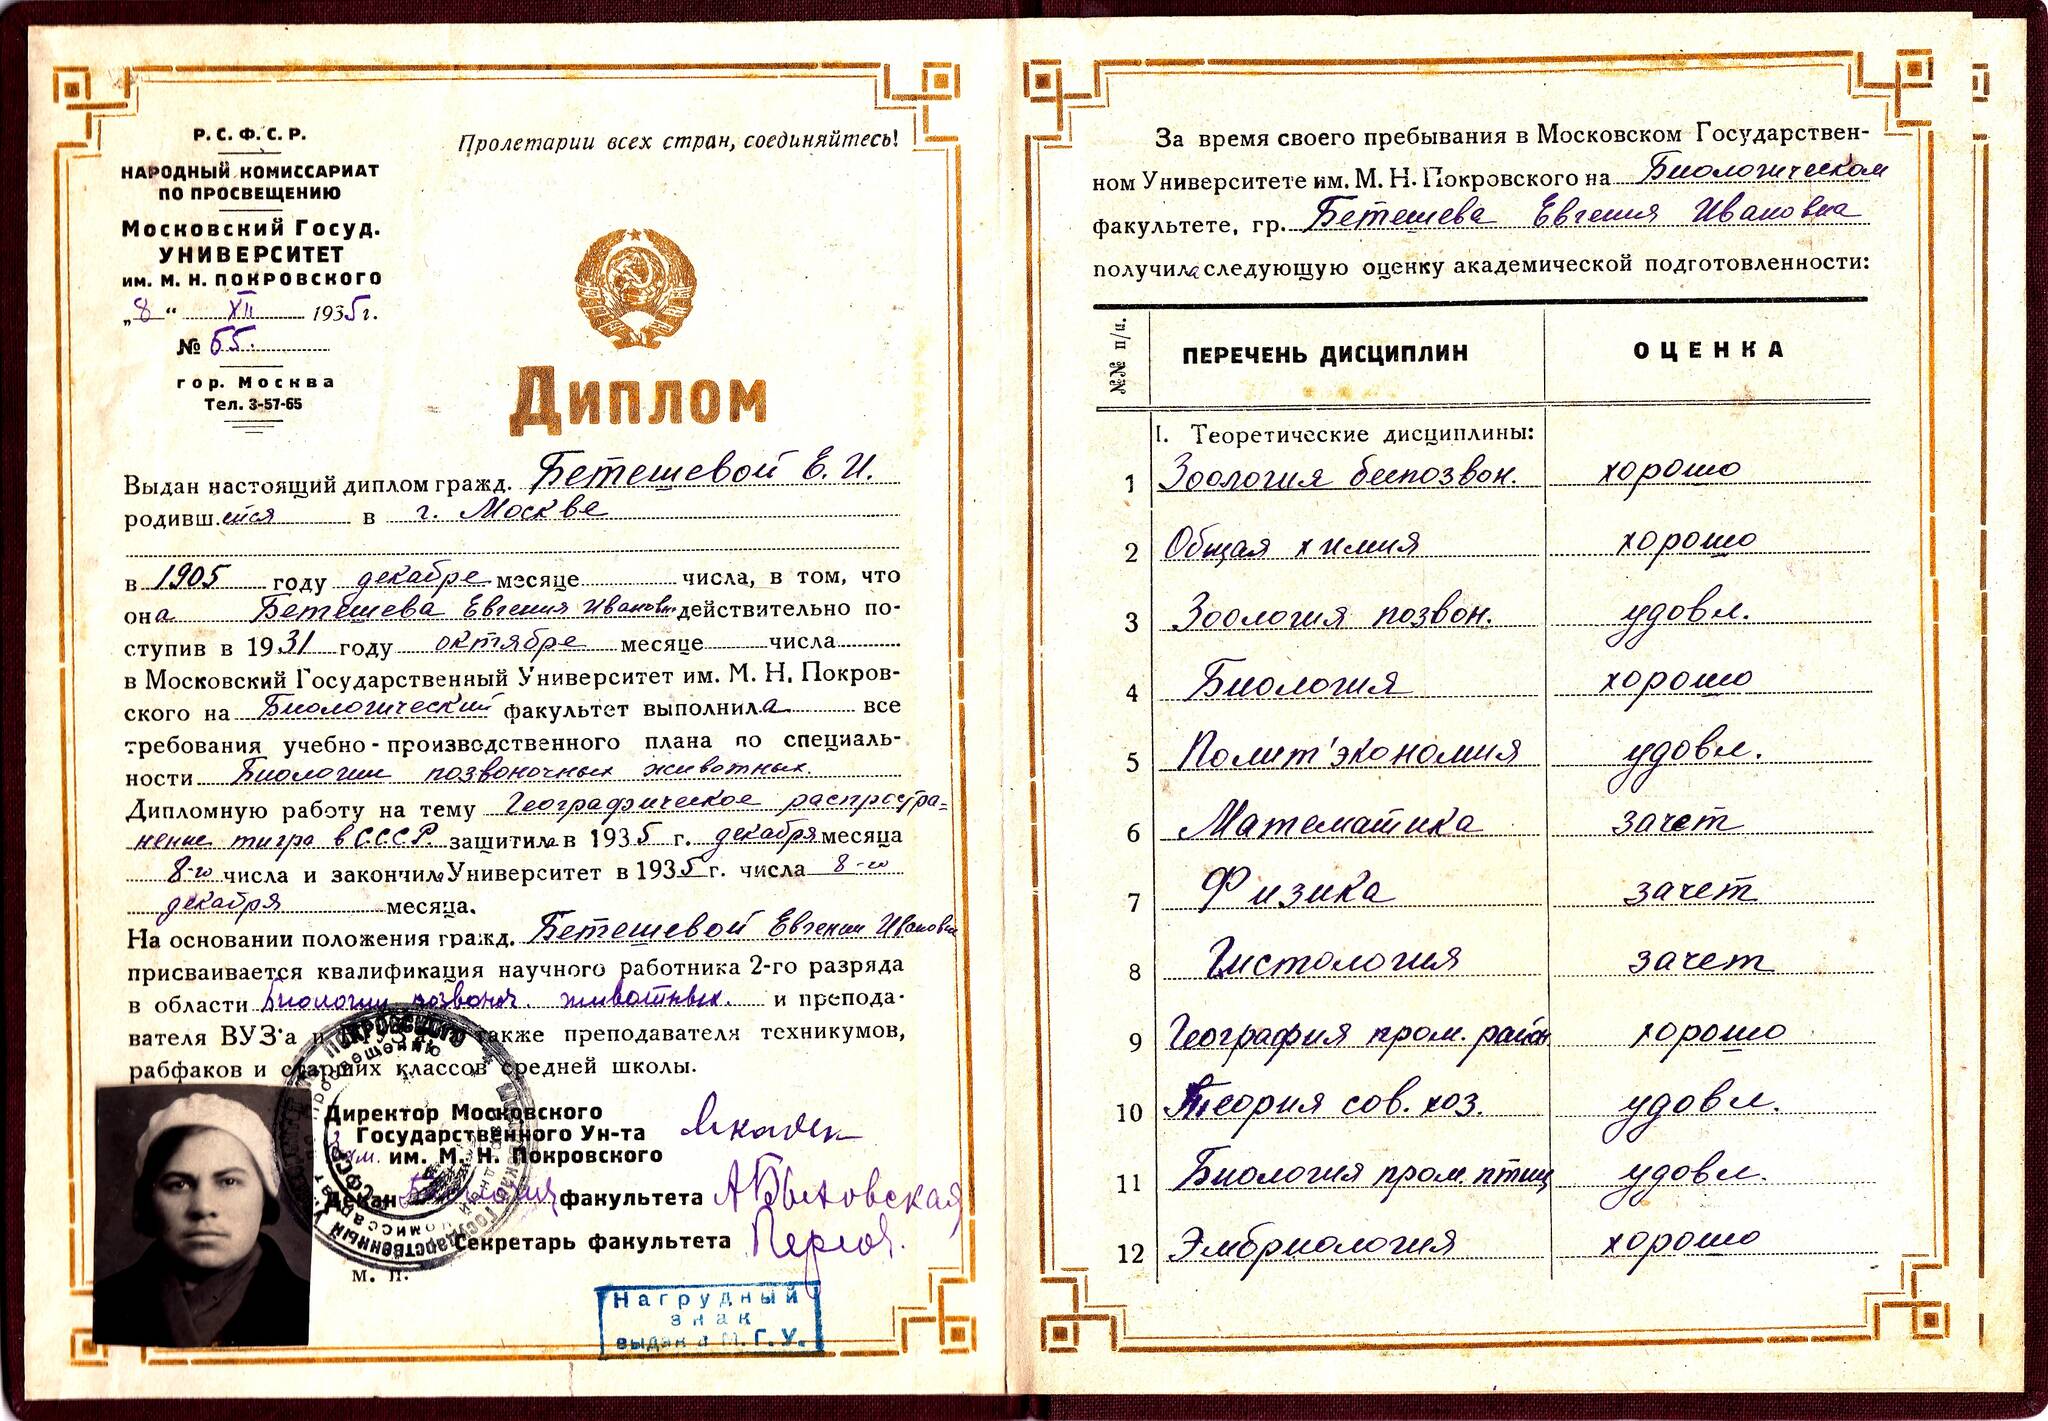 Р. С. Ф. С. Р.
НАРОДНЫЙ КОМИССАРИАТ
ПО ПРОСВЕЩЕНИЮ
Московский Госуд.
УНИВЕРСИТЕТ
им. М. Н. ПОКРОВСКОГО
„8“ XII 1935 г.
№ 55.
гор. Москва
Тел. 3-57-65
Пролетарии всех стран, соединяйтесь!
Диплом
Выдан настоящий диплом гражд. Бетешевой Е. И.
родившейся в г. Москве
в 1905 году декабре месяце числа, в том, что
она Бетешева Евгения Ивановна действительно по-
ступив в 1931 году октябре месяце числа
в Московский Государственный Университет им. М. Н. Покров-
ского на Биологический факультет выполнила все
требования учебно-производственного плана по специаль-
ности Биологии позвоночных животных.
Дипломную работу на тему Географическое распростра-
нение тигра в С.С.С.Р. защитила в 1935 г. декабря месяца
8-го числа и закончила Университет в 1935 г. числа 8-го
декабря месяца.
На основании положения гражд. Бетешевой Евгении Ивановне
присваивается квалификация научного работника 2-го разряда
в области Биологии позвоноч. животных. и препода-
вателя ВУЗ'а и также преподавателя техникумов,
рабфаков и старших классов средней школы.
Директор Московского
Государственного Ун-та
им. М. Н. Покровского
Зам.
Декан факультета А Быховская
Секретарь факультета
м. п.
Нагрудный
знак
выдан в М.Г.У.
За время своего пребывания в Московском Государствен-
ном Университете им. М. Н. Покровского на Биологическом
факультете, гр. Бетешева Евгения Ивановна
получила следующую оценку академической подготовленности:
№№ п/п. ПЕРЕЧЕНЬ ДИСЦИПЛИН ОЦЕНКА
I. Теоретические дисциплины:
1 Зоология беспозвон. хорошо
2 Общая химия хорошо
3 Зоология позвон. удовл.
4 Биология хорошо
5 Полит'экономия удовл.
6 Математика зачет
7 Физика зачет
8 Гистология зачет
9 География пром. район хорошо
10 Теория сов. хоз. удовл.
11 Биология пром. птиц удовл.
12 Эмбриология хорошо